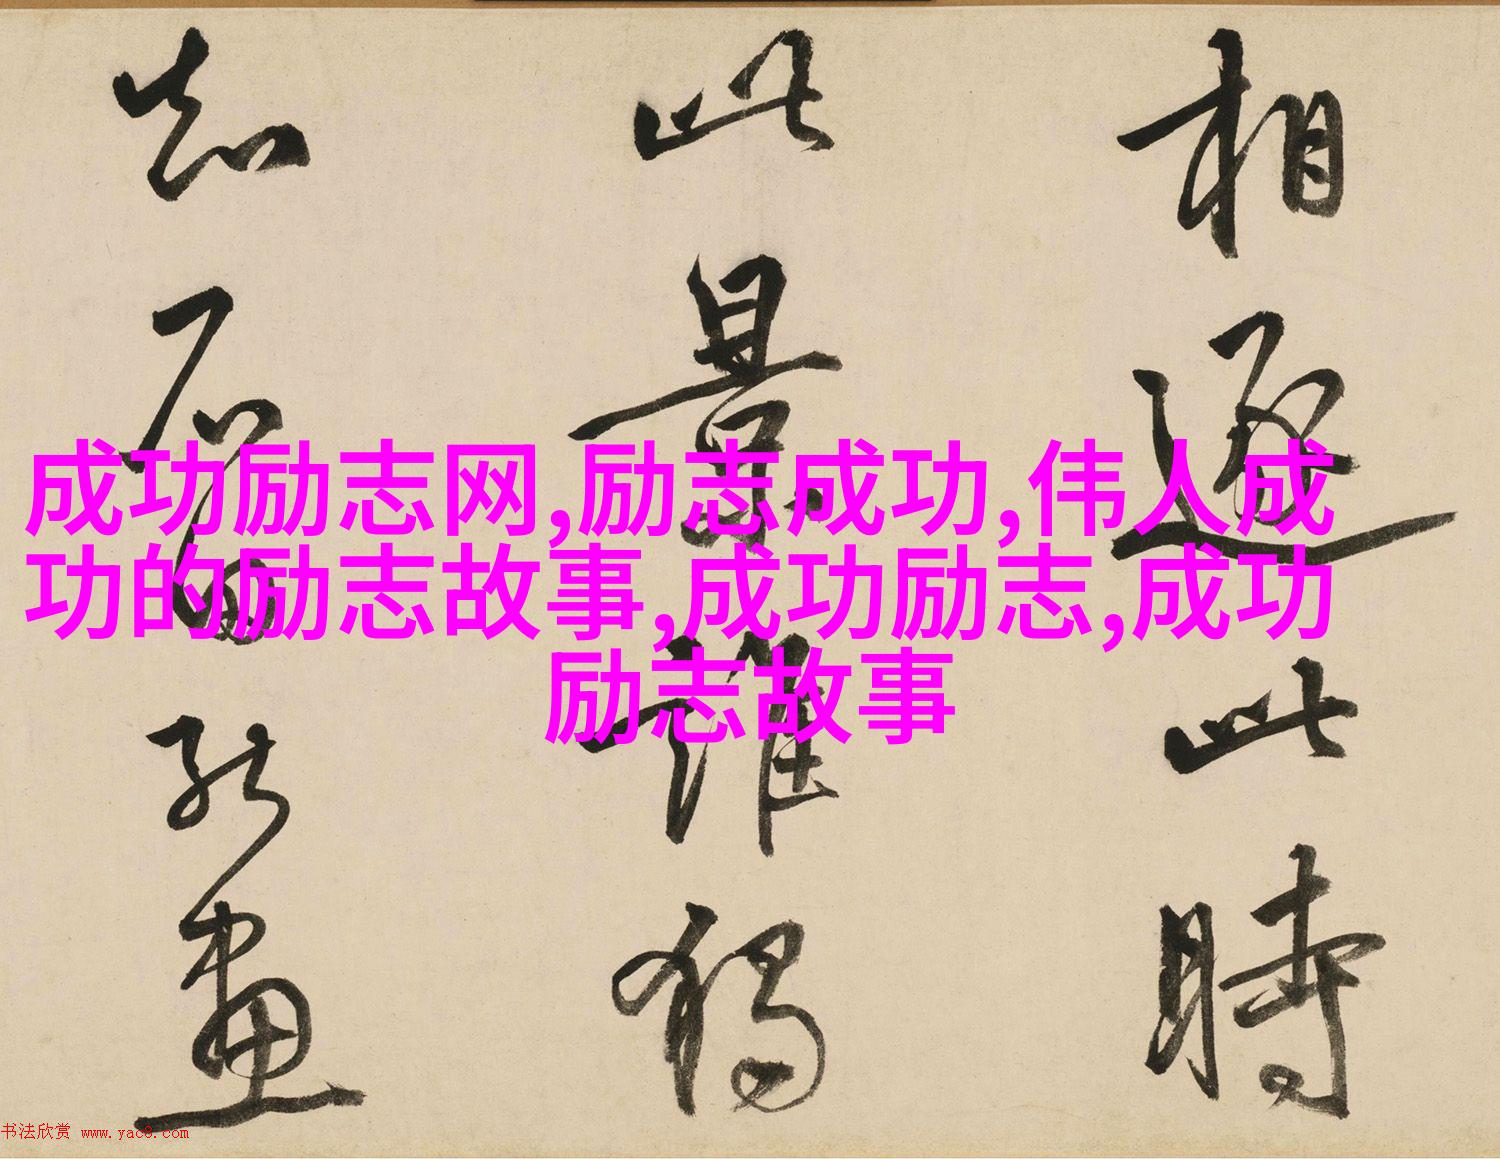 相逐此時
此景誰獨
知石田能畫
成功励志网,励志成功,伟人成
功的励志故事,成功励志,成功
励志故事
书法欣赏 www.yac8.com